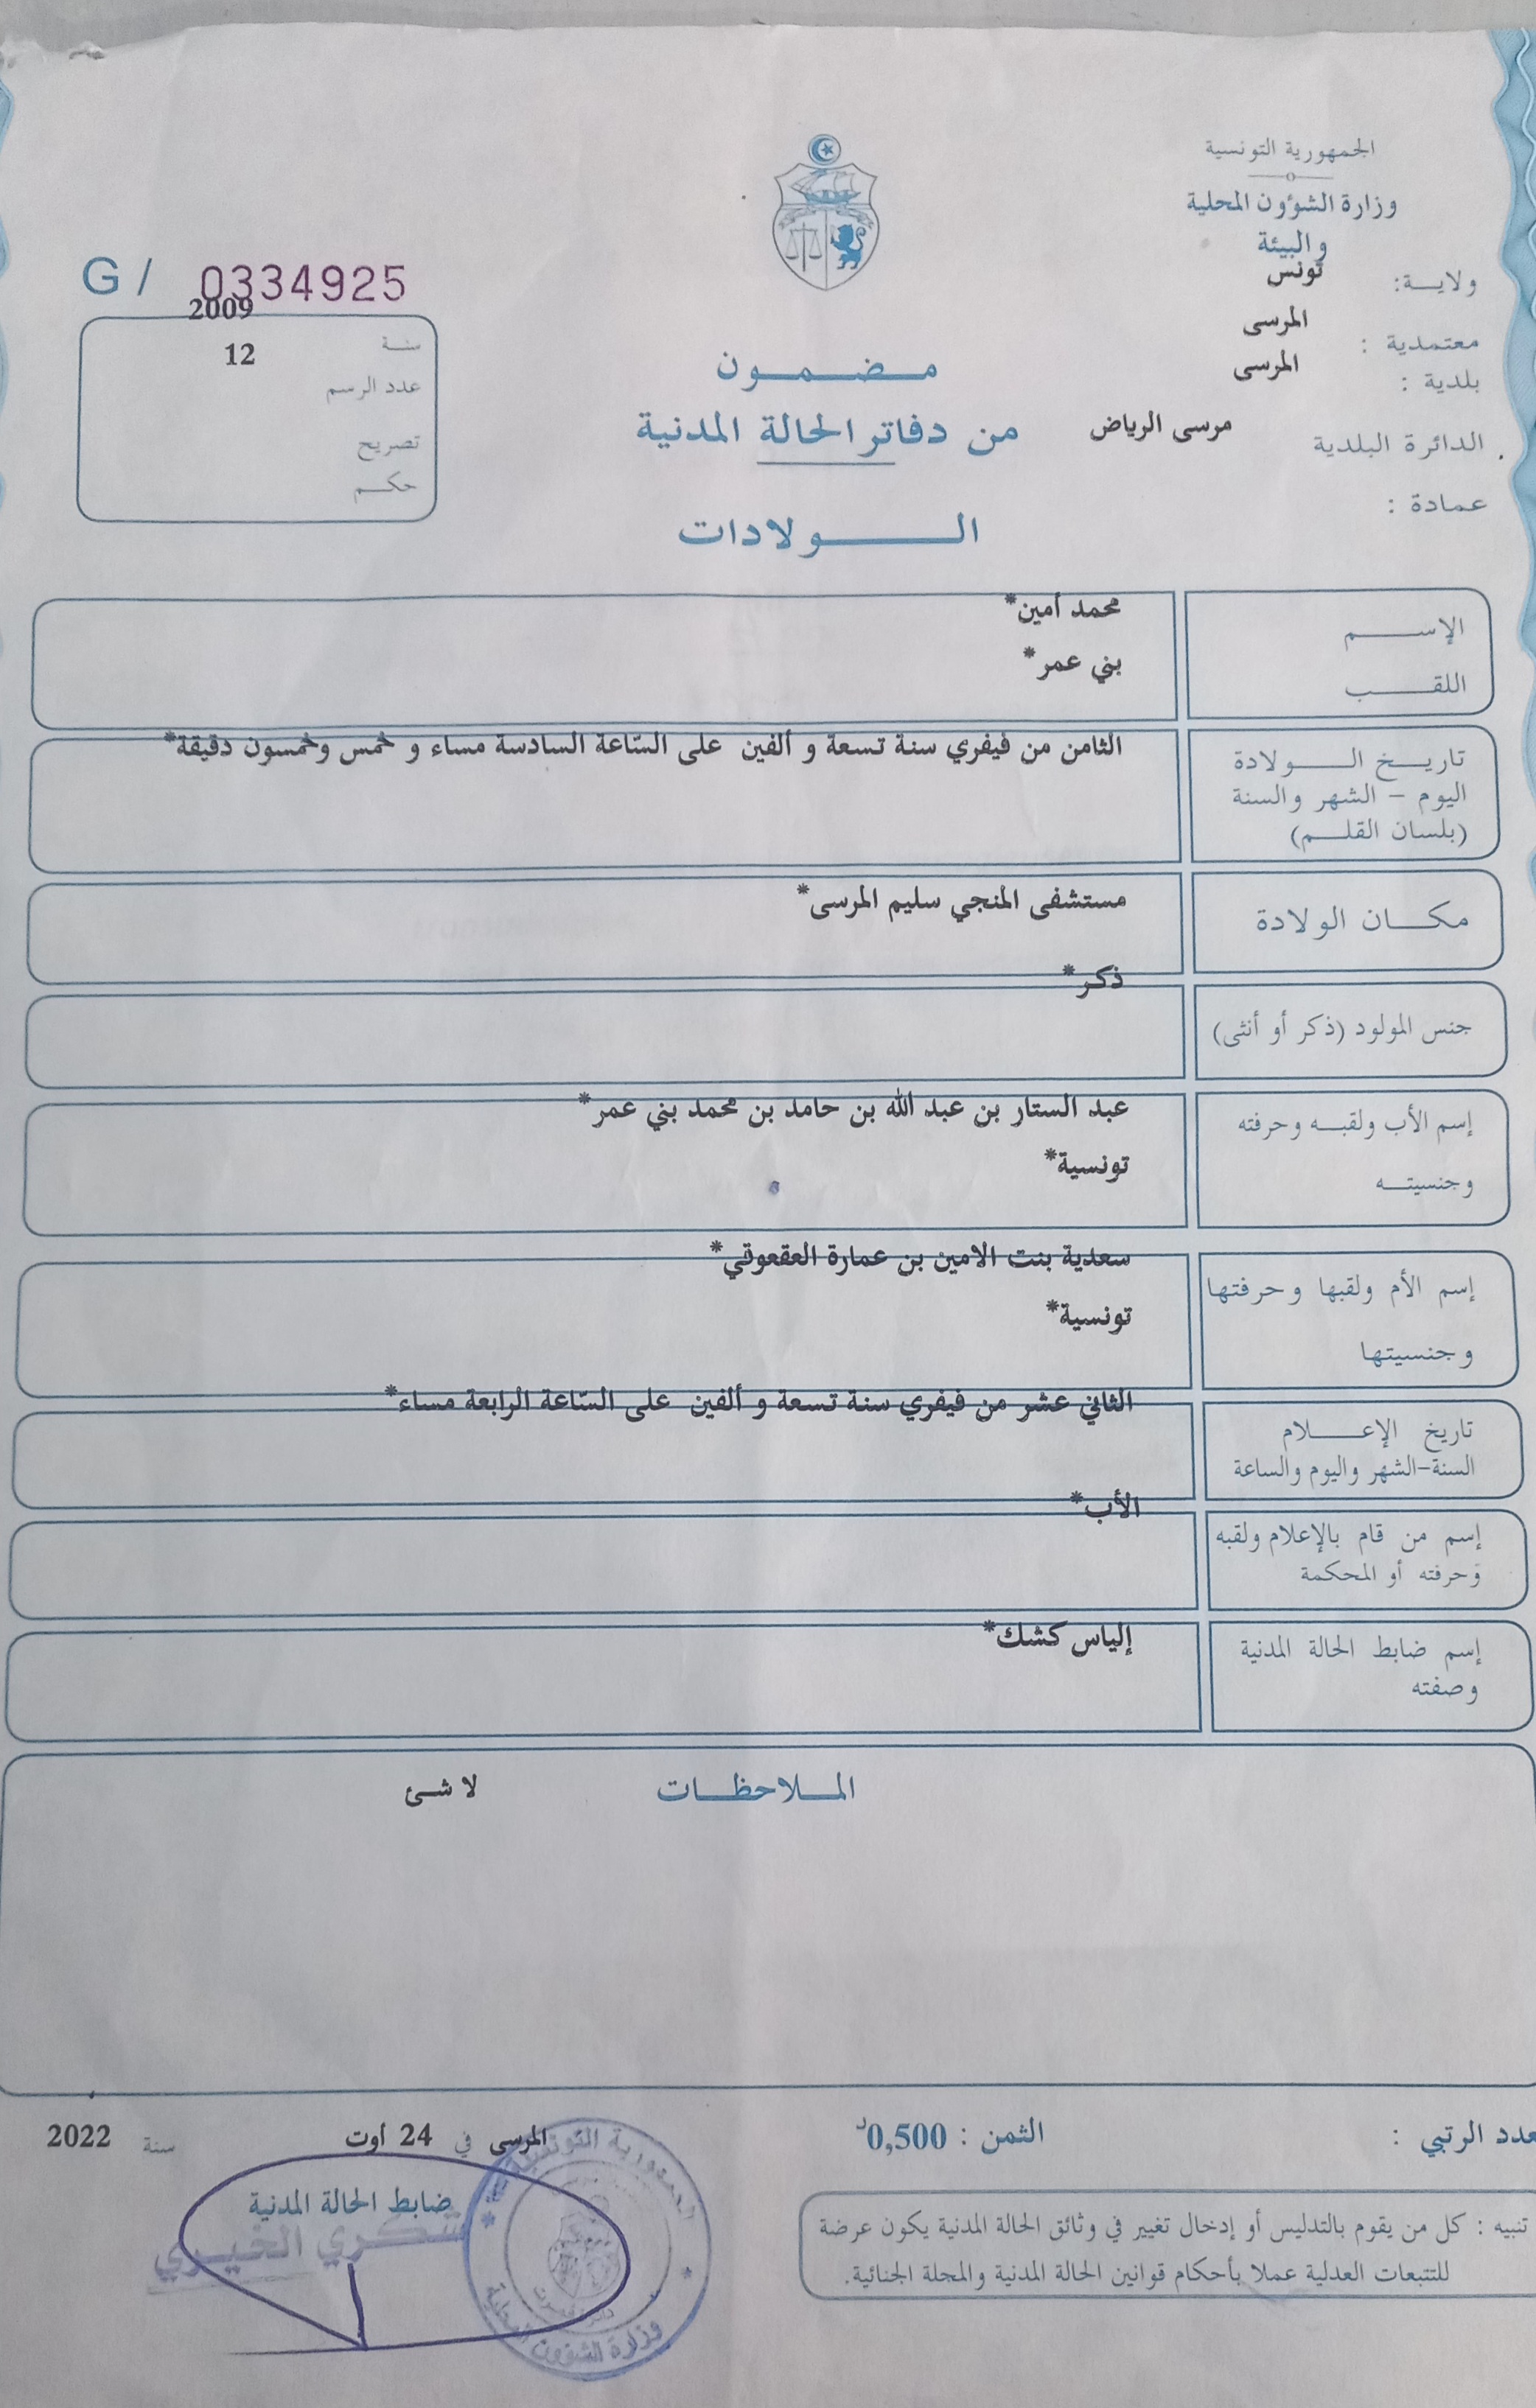 الجمهورية التونسية
وزارة الشؤون المحلية
والبيئة
ولايـــة: تونس
معتمدية : المرسى
بلدية : المرسى
الدائرة البلدية مرسى الرياض
عمادة :
G / 0334925
سنـة 2009
عدد الرسم 12
تصريح
حكـم
مـضـمـون
من دفاتر الحالة المدنية
الـولادات
الإســـم محمد أمين*
اللقـــب بني عمر*
تاريـخ الـولادة الثامن من فيفري سنة تسعة و ألفين على السّاعة السادسة مساء و خمس وخمسون دقيقة*
اليوم - الشهر والسنة
(بلسان القلـم)
مكـان الولادة مستشفى المنجي سليم المرسى*
جنس المولود (ذكر أو أنثى) ذكر*
إسم الأب ولقبـه وحرفته عبد الستار بن عبد الله بن حامد بن محمد بني عمر*
وجنسيتـه تونسية*
إسم الأم ولقبها وحرفتها سعدية بنت الامين بن عمارة العقعوقي*
وجنسيتها تونسية*
تاريخ الإعـلام الثاني عشر من فيفري سنة تسعة و ألفين على السّاعة الرابعة مساء*
السنة-الشهر واليوم والساعة
إسم من قام بالإعلام ولقبه الأب*
وحرفته أو المحكمة
إسم ضابط الحالة المدنية إلياس كشك*
وصفته
المـلاحظـات لا شئ
عدد الرتبي :
الثمن : 0,500د
المرسى في 24 أوت سنة 2022
ضابط الحالة المدنية
شكري الخيري
الجمهورية التونسية
وزارة الشؤون المحلية
تنبيه : كل من يقوم بالتدليس أو إدخال تغيير في وثائق الحالة المدنية يكون عرضة
للتتبعات العدلية عملا بأحكام قوانين الحالة المدنية والمجلة الجنائية.